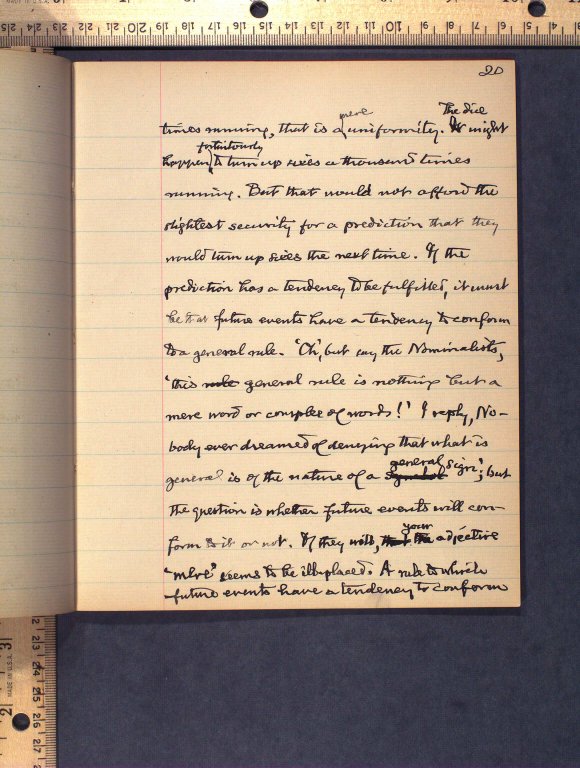 20
times running, that is a mere uniformity. The dice might
happen fortuitously to turn up sixes a thousand times
running. But that would not afford the
slightest security for a prediction that they
would turn up sixes the next time. If the
prediction has a tendency to be fulfilled, it must
be that future events have a tendency to conform
to a general rule. 'Oh', but say the Nominalists,
'this rule general rule is nothing but a
mere word or couple of words!' I reply, 'No-
body ever dreamed of denying that what is
general is of the nature of a symbol general sign; but
the question is whether future events will con-
form to it or not. If they will, your adjective
'mere' seems to be ill-placed.' A rule to which
future events have a tendency to conform